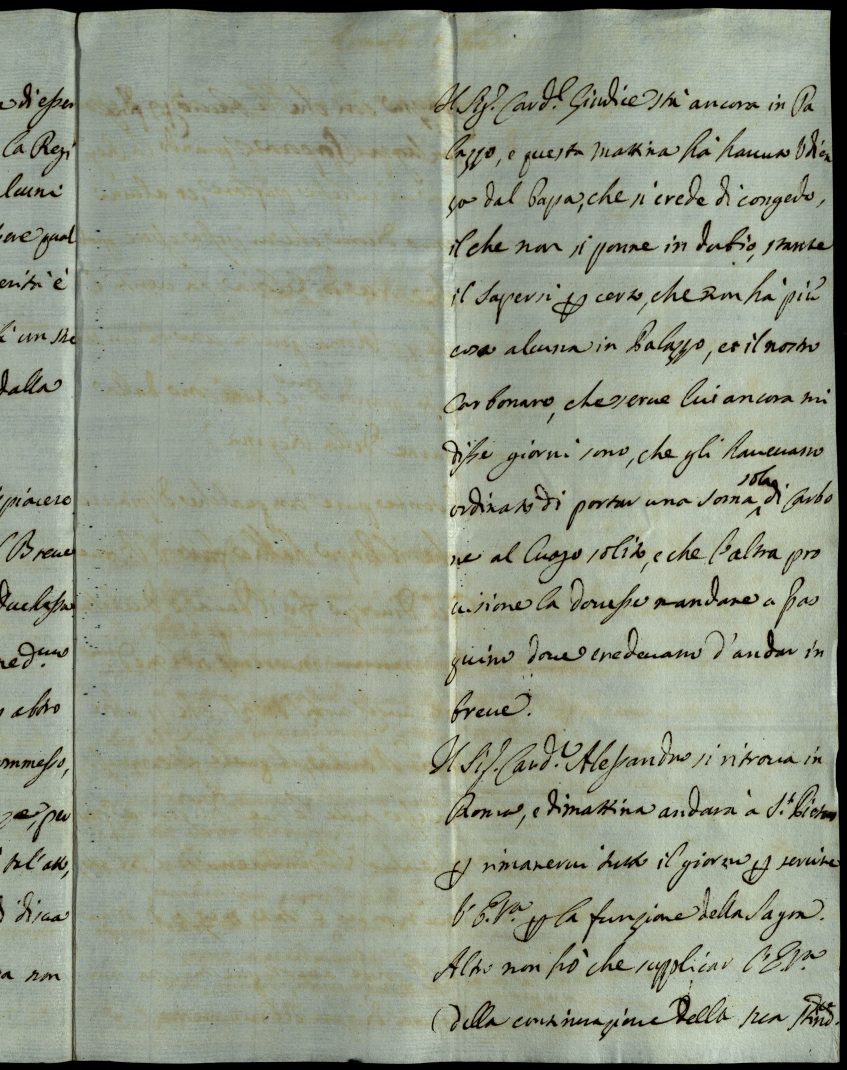 a di esser
la Regi
alcuni
bere qual
eriti è
li con che
dalla
piacere
Breve
altro
ommesso,
per
tal' atto,
di sua
a non
Il Sig.r Card.l Giudice stà ancora in Pa
lazzo, e questa mattina hà hauuta Udien
za dal Papa, che si crede di congedo,
il che non si pone in dubio, stante
il sapersi p certo, che non hà più
cosa alcuna in Palazzo, et il nostro
Carbonaro, che serue lui ancora mi
disse giorni sono, che gli haueuano
ordinato di portar una soma sola di Carbo
ne al luogo solito, e che l'altra pro
uisione la douesse mandare a Pas
quino doue credeuano d'andar in
breue.
Il Sig.r Card.l Alessandro si ritroua in
Roma, e dimattina andarà à S.t Pietro
p rimanerui tutto il giorno p seruire
l'E.V.ra p la funzione della Sagra.
Altro non hò che supplicar l'E.V.ra
della continuazione della sua